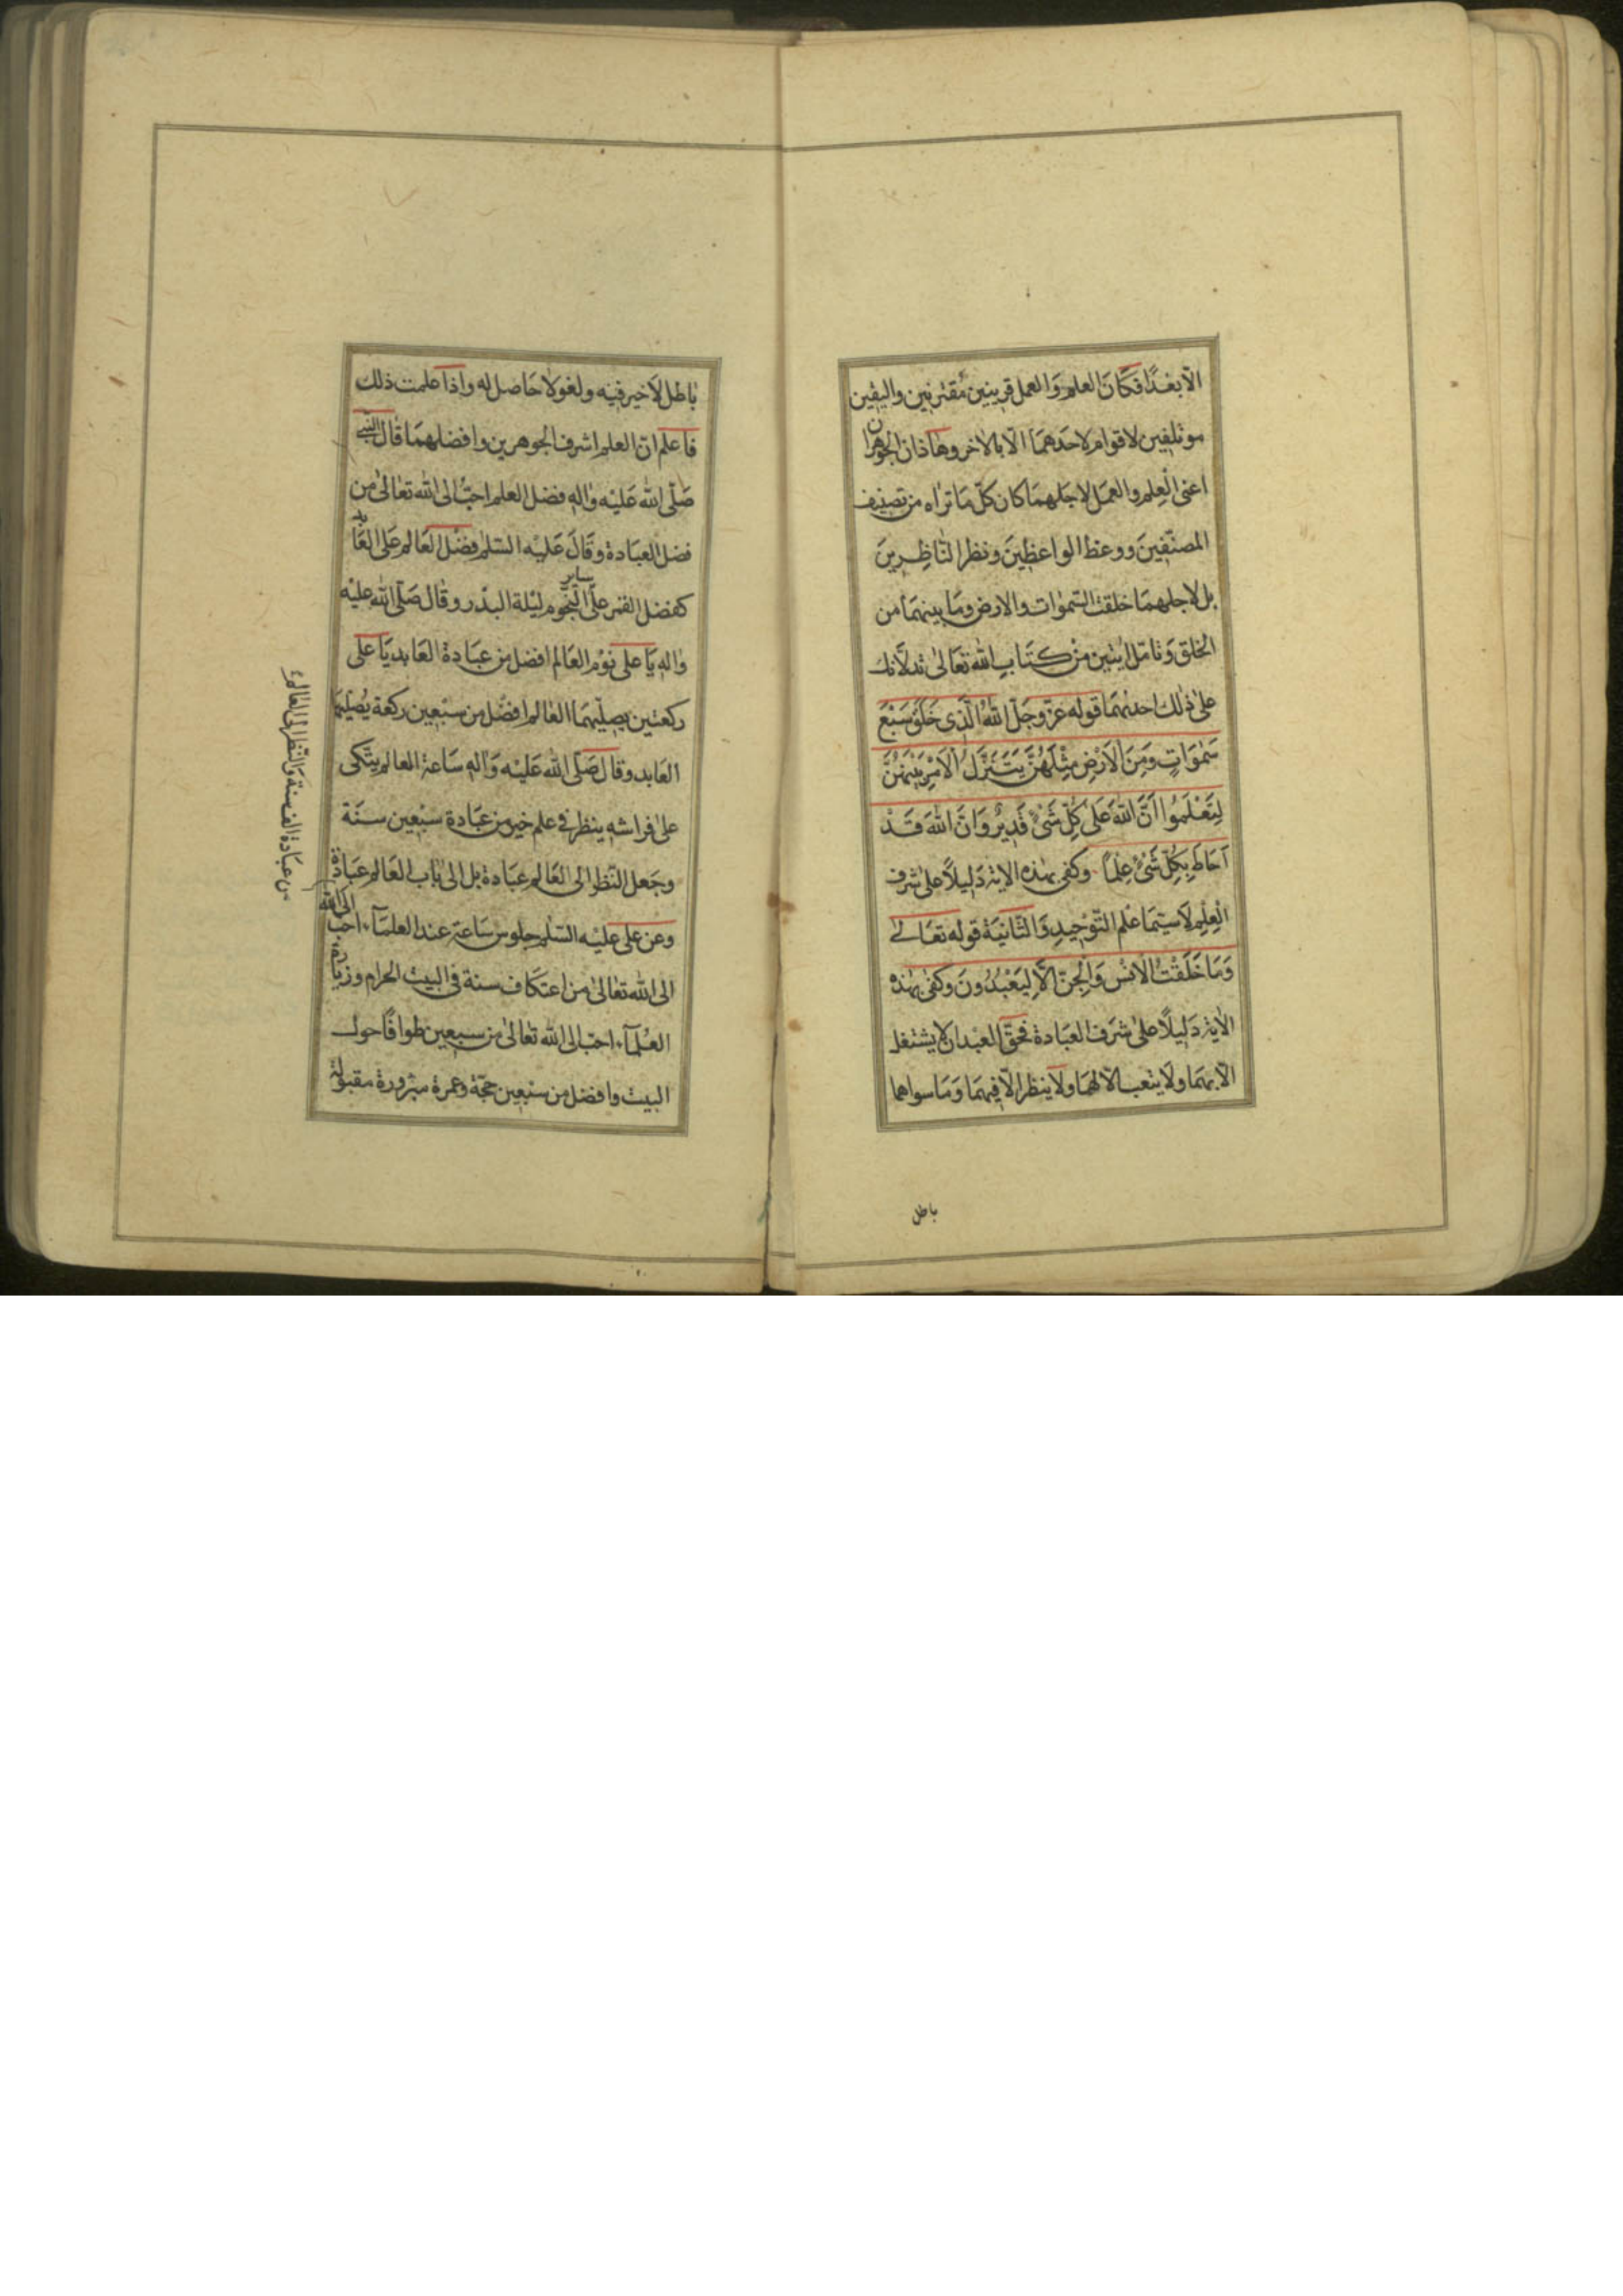 الّا بعْدًا فكَانَ العلم وَالعمل قرينين مُقترنين واليفين
موتلفين لاقوام لاحدهمَا الّا بالاخر وهاذان الجوهران
اعنى الْعِلم والعمَل لاجلهمَا كان كلّ مَا تراه من تصنيف
المصنّفينَ ووعظ الواعظينَ ونظر النّاظِرينَ
بل لاجلهمَا خلقت السّموٰات والارض ومَا بينهمَا من
الخلق وَتامّل ايتين منْ كتَابِ اللّه تعَالىٰ تدلّانك
علىٰ ذٰلك احدٰهمَا قوله عزّ وجَلّ اللّهُ الَّذِى خَلَقَ سَبْعَ
سَمٰوَاتٍ وَمِنَ الْاَرْضِ مِثْلَهُنَّ يَتَنَزَّلُ الْاَمْرُ بَيْنَهُنَّ
لِتَعْلَمُوا اَنَّ اللّهَ عَلىٰ كُلِّ شَىْءٍ قَدِيرٌ وَاَنَّ اللّهَ قَدْ
اَحَاطَ بِكُلِّ شَىْءٍ عِلْمًا وكفى بهٰذه الاية دَليلًا علىٰ شرف
الْعِلم لَاسيّمَا عْلم التّوْحيدِ وَالثّانيَة قوله تعَالىٰ
وَمَا خَلَقْتُ الْاِنْسَ وَالْجِنَّ اِلَّا لِيَعْبُدُونَ وكفىٰ بهٰذه
الاٰية دَليلًا علىٰ شرَف العبَادة فحقّ العبْد ان لا يشتغل
الّا بهمَا ولَا يتعب الّا لهمَا ولَا ينظر الّا فيهمَا وَمَا سواهما
باطل
بٰاطل لَاخير فيْه ولغو لاحَاصل له واذا علمت ذلك
فاعلم انّ العلم اشرف الجوهرين وافضلهمَا قال النّبى
صَلّى اللّه عَليْه واٰلهِ فضل العلم احبُّ الى اللّه تعٰالىٰ من
فضل العبَادة وقَالَ عَليْه السّلم فضْل العَالم عَلى العَابد
كفضل القمر علَى سَاير النّجوم ليْلة البدْر وقال صَلّى اللّه عليْه
واٰلهِ يَا على نوْم العَالم افضل من عبَادة العَابد يَا على
ركعتين يصلّيهمَا العَالم افضل من سبْعين ركعة يُصلّيهَا
العَابد وقال صَلّى اللّه عَليْه وَاٰلهِ سَاعة العالم يتّكى
علىٰ فراشه ينظر فى علم خير من عبَادة سبْعين سنَة
وجَعل النّظر الى العَالم عبَادة بل الىٰ بَاب العَالم عبَادة
وعن على عليْه السّلم جلوس سَاعة عند العلمَآء احبّ الى اللّه
من عبَادة الف سنة وَالنّظر الى العَالم
الى اللّه تعٰالىٰ من اعتكَاف سنة فى البيت الحرام وزيَارة
العلمَآء احبّ الى اللّه تعٰالىٰ من سبعين طوافًا حول
البيت وافضل من سبْعين حجّة وعمرة مبْرورة مقبولة